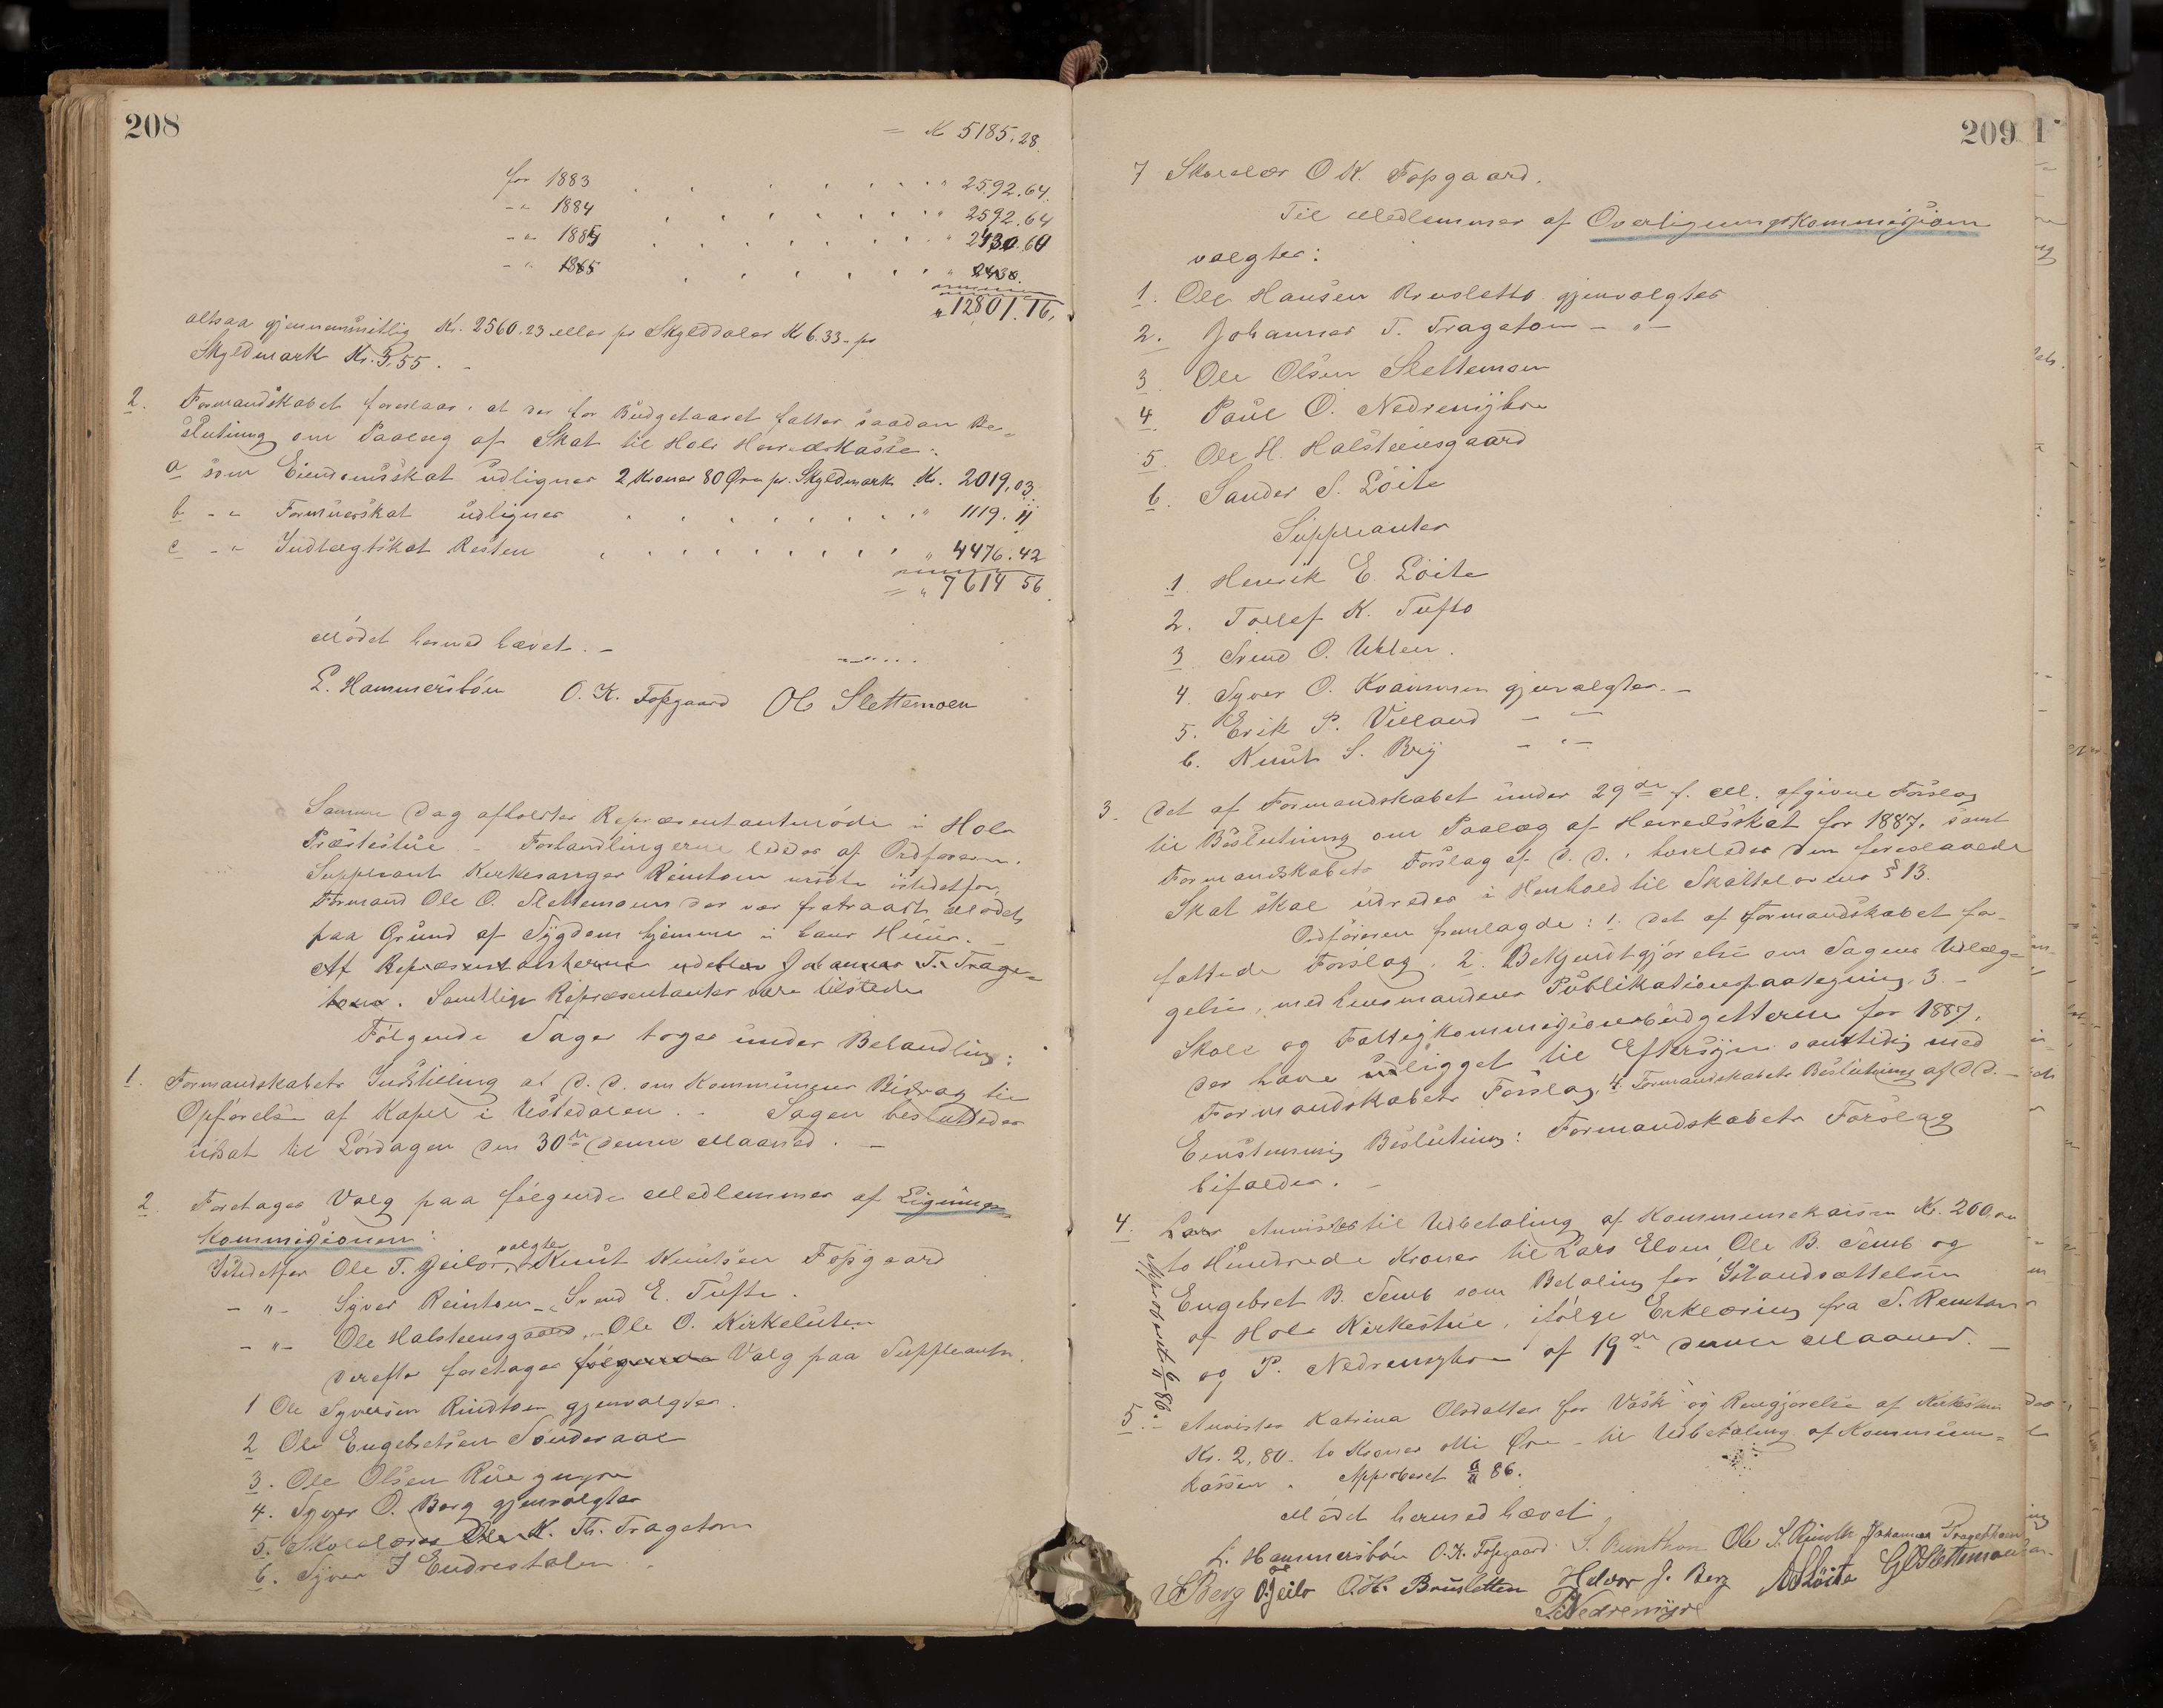 208
= Kr 5185.28.
for 1883 . . . . . . . " 2592.64.
-"- 1884 . . . . . . . " 2592.64
-"- 1885 . . . . . . . " 2430.60
-"- 1885 . . . . . . " 2430.
" 12801.16.
altsaa gjennemsnitlig Kr. 2560.23 eller pr Skylddaler Kr 6.33 - pr
Skyldmark Kr. 3,55. -
2. Formandskabet foreslaar: at der for Budgetaaret fattes saadan Be-
slutning om Paalæg af Skat til Hols Herredskasse:
a som Eiendomsskat udlignes 2 Kroner 80 Øre pr. Skyldmark Kr. 2019,03
b -"- Formuesskat udlignes . . . . . . . " 1119.11
c -"- Indtægtskat Resten . . . . . . . " 4476.42
= " 7614 56.
Mødet hermed hævet. -
L. Hammersbøn O. K. Fosgaard OO Slettemoen
Samme Dag afholdtes Repræsentantmøde i Hols
Præstestue. - Forhandlingerne lededes af Ordføreren.
Suppleant Kirkesanger Reinton mødte istedetfor
Formand Ole O. Slettemoen der var fratraadt Mødet
paa Grund af Sygdom hjemme i hans Huus. -
Af Repræsentanterne udeblev Johannes T. Trage-
ton. Samtlige Repræsentanter vare tilstede
Følgende Sager toges under Behandling:
1. Formandskabets Indstilling af D. D. om Kommunens Bidrag til
Opførelse af Kapel i Ustedalen. - Sagen besluttedes
udsat til Lørdagen den 30te denne Maaned. -
2. Foretages Valg paa følgende Medlemmer af Lignings-
kommissionen:
Istedetfor Ole T. Geilo, valgtes Knut Knutsen Fosgaard
-"- Syver Reinton -"- Svend E. Tufte.
-"- Ole Halsteensgaard -"- Ole O. Kirkeluten
Derefter foretages følgende Valg paa Suppleanter.
1 Ole Syversen Rindtoen gjenvalgtes.
2 Ole Engebretsen Sønderaal
3. Ole Olsen
4. Syver O. Berg gjenvalgtes
5. Skolelærer Ole K. Th. Trageton
6. Syver J Endrestølen
209
7 Skolelær O K. Fosgaard.
Til Medlemmer af Overligningskommissjon
valgtes:
1. Ole Hansen Bruslette gjenvalgtes
2. Johannes T. Trageton -"-
3 Ole Olsen Slettemoen
4 Paul O. Nedremyhre
5 Ole H. Halsteensgaard
6. Sander S. Løite
Suppleanter
1 Henrik E. Løite
2. Tollef K. Tufto
3 Svend O. Uhlen.
4. Syver O. Kvaimmen gjenvalgtes. -
5. Erik P. Villand -"-
6. Knut S. Bry -"-
3. Det af Formandskabet under 29de f. M. afgivne Forslag
til Beslutning om Paalæg af Herredsskat for 1887, samt
Formandskabets Forslag af D. D., hvorledes den foreslaaede
Skat skal udredes i Henhold til Skattelovens § 13.
Ordføreren fremlagde: 1. Det af Formandskabet fa-
ttede Forslag. 2. Bekjendtgjørelse om Sagens Udlæg-
gelse, med Lensmandens Publikationspaategning. 3. -
Skole og Fattigkommissionsbudgetterne for 1887,
der have udligget til Eftersyn samtidig med
Formandskabets Forslag. 4. Formandskabets Beslutning af D D. -
Eenstemmig Beslutning: Formandskabets Forslag
bifaldes. -
4. Lars Anvistes til Udbetaling af Kommunekassen Kr. 200,00
to Hundrede Kroner til Lars Elven, Ole B. Semb og
Engebret B. Semb som Betaling for Istandsættelsen
af Hols Kirkestue, ifølge Erklæring fra S. Reinton
og P. Nedremyhre af 19de denne Maaned. -
Approberet 6/11 86.
5. - Anvistes Katrina Olsdatter for Vask og Rengjørelse af Kirkestuen
Kr. 2,80 - to Kroner otti Øre - til Udbetaling af Kommune-
kassen. Approberet 6/11 86.
Mødet hermed hævet
L. Hammersbøn O. K. Fosgaard S. Reinton Ole S. Rinth Johannes Tragethon
Berg O. Geilo O. H. Brusletten Halvor J. Berg ASLøite GOSlettemoen
P. Nedremyre